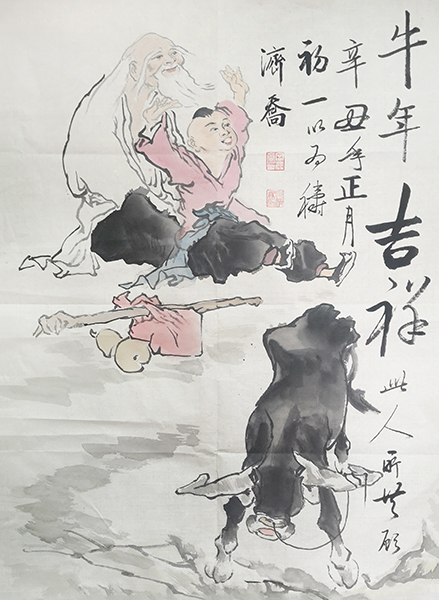 牛年吉祥 此人所共願
辛丑年正月
初一以为祷
濟喬